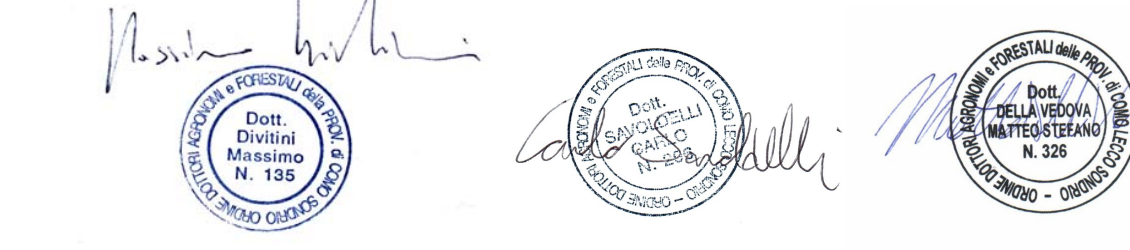 Massimo Divitini
ORDINE DOTTORI AGRONOMI e FORESTALI della PROV. di COMO SONDRIO
Dott.
Divitini
Massimo
N. 135
Carlo Savoldelli
ORDINE DOTTORI AGRONOMI e FORESTALI delle PROV. di COMO LECCO SONDRIO
Dott.
SAVOLDELLI
CARLO
ORDINE DOTTORI AGRONOMI e FORESTALI delle PROV. di COMO LECCO SONDRIO
Dott.
DELLA VEDOVA
MATTEO STEFANO
N. 326